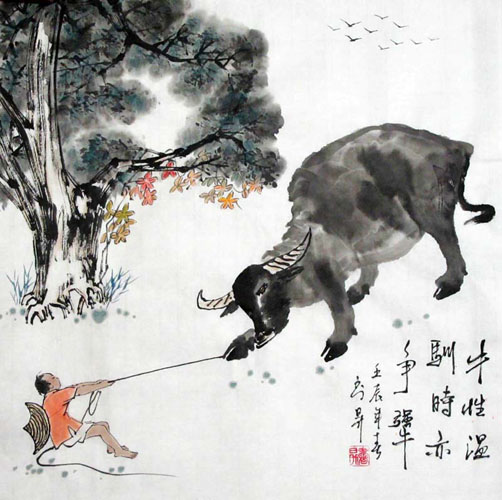 牛性温
馴時亦
争犟
壬辰年春